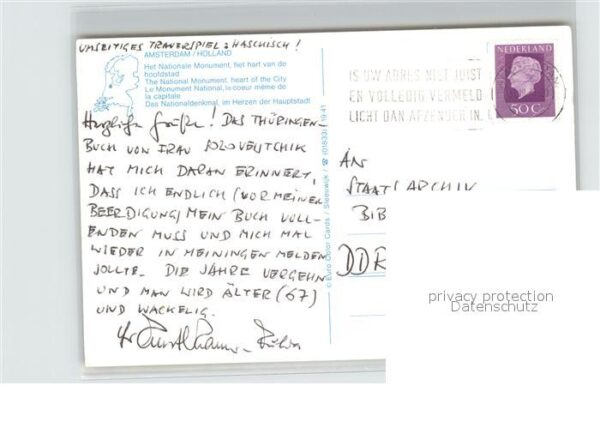 UMSEITIGES TRAUERSPIEL: HASCHISCH!
AMSTERDAM / HOLLAND
Het Nationale Monument, het hart van de
hoofdstad
The National Monument, heart of the City
Le Monument National, le coeur même de
la capitale
Das Nationaldenkmal, im Herzen der Hauptstadt
Herzliche Grüße! DAS THÜRINGEN-
BUCH VON FRAU
HAT MICH DARAN ERINNERT,
DASS ICH ENDLICH (VOR MEINER
BEERDIGUNG) MEIN BUCH VOLL-
ENDEN MUSS UND MICH MAL
WIEDER IN MEININGEN MELDEN
SOLLTE. DIE JAHRE VERGEHN
UND MAN WIRD ÄLTER (67)
UND WACKELIG.
Ihr
© Euro Color Cards / Sleeswijk / ☎ (01833) 1941
IS UW ADRES NIET JUIST
EN VOLLEDIG VERMELD
LICHT DAN AFZENDER IN.
NEDERLAND
50 C
AN
STAATSARCHIV
BIB
DDR
privacy protection
Datenschutz